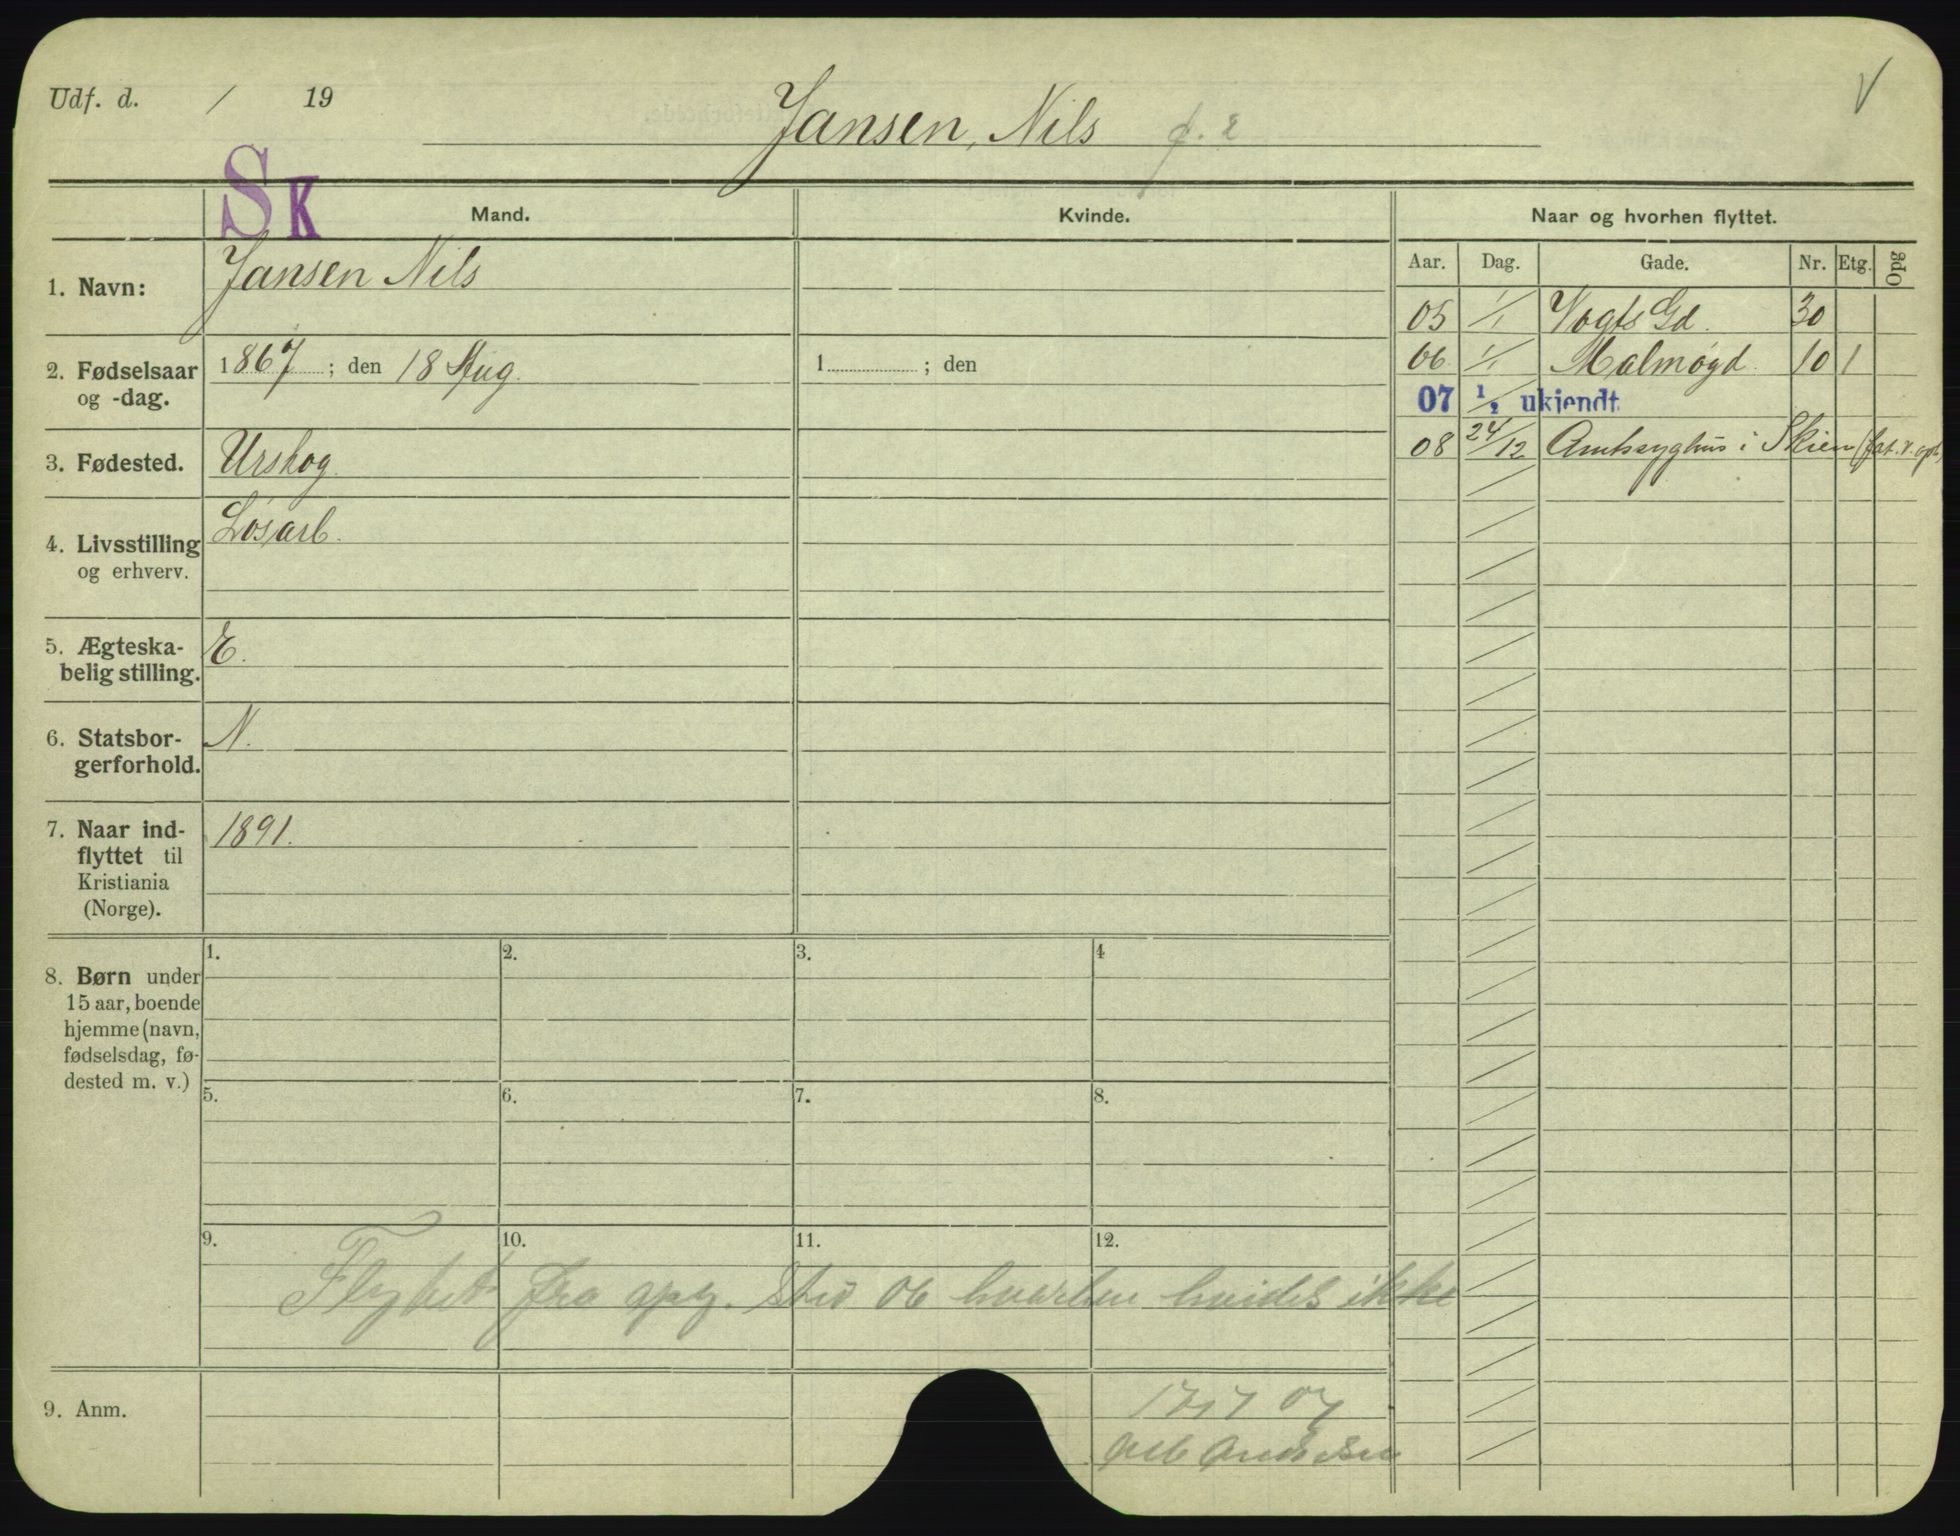 Udf. d. / 19
Jansen, Nils
V
SK
Mand. Kvinde. Naar og hvorhen flyttet.
Aar. Dag. Gade. Nr. Etg. Opg
1. Navn: Jansen Nils
05 1/1 Vogts Gd. 30
2. Fødselsaar og -dag. 1867 ; den 18 Aug. 1 ; den
06 1/1 Malmøgd. 10 1
07 1/2 ukjendt.
08 24/12 Amtssyghus i Skien
3. Fødested. Urskog
4. Livsstilling og erhverv. Løsarb.
5. Ægteska-
belig stilling. E.
6. Statsbor-
gerforhold. N.
7. Naar ind-
flyttet til
Kristiania
(Norge). 1891.
8. Børn under
15 aar, boende
hjemme (navn,
fødselsdag, fø-
dested m. v.)
1. 2. 3. 4
5. 6. 7. 8.
9. 10. 11. 12.
Flyttet fra opg. Sted 06 hvorhen hvides ikke
9. Anm.
07